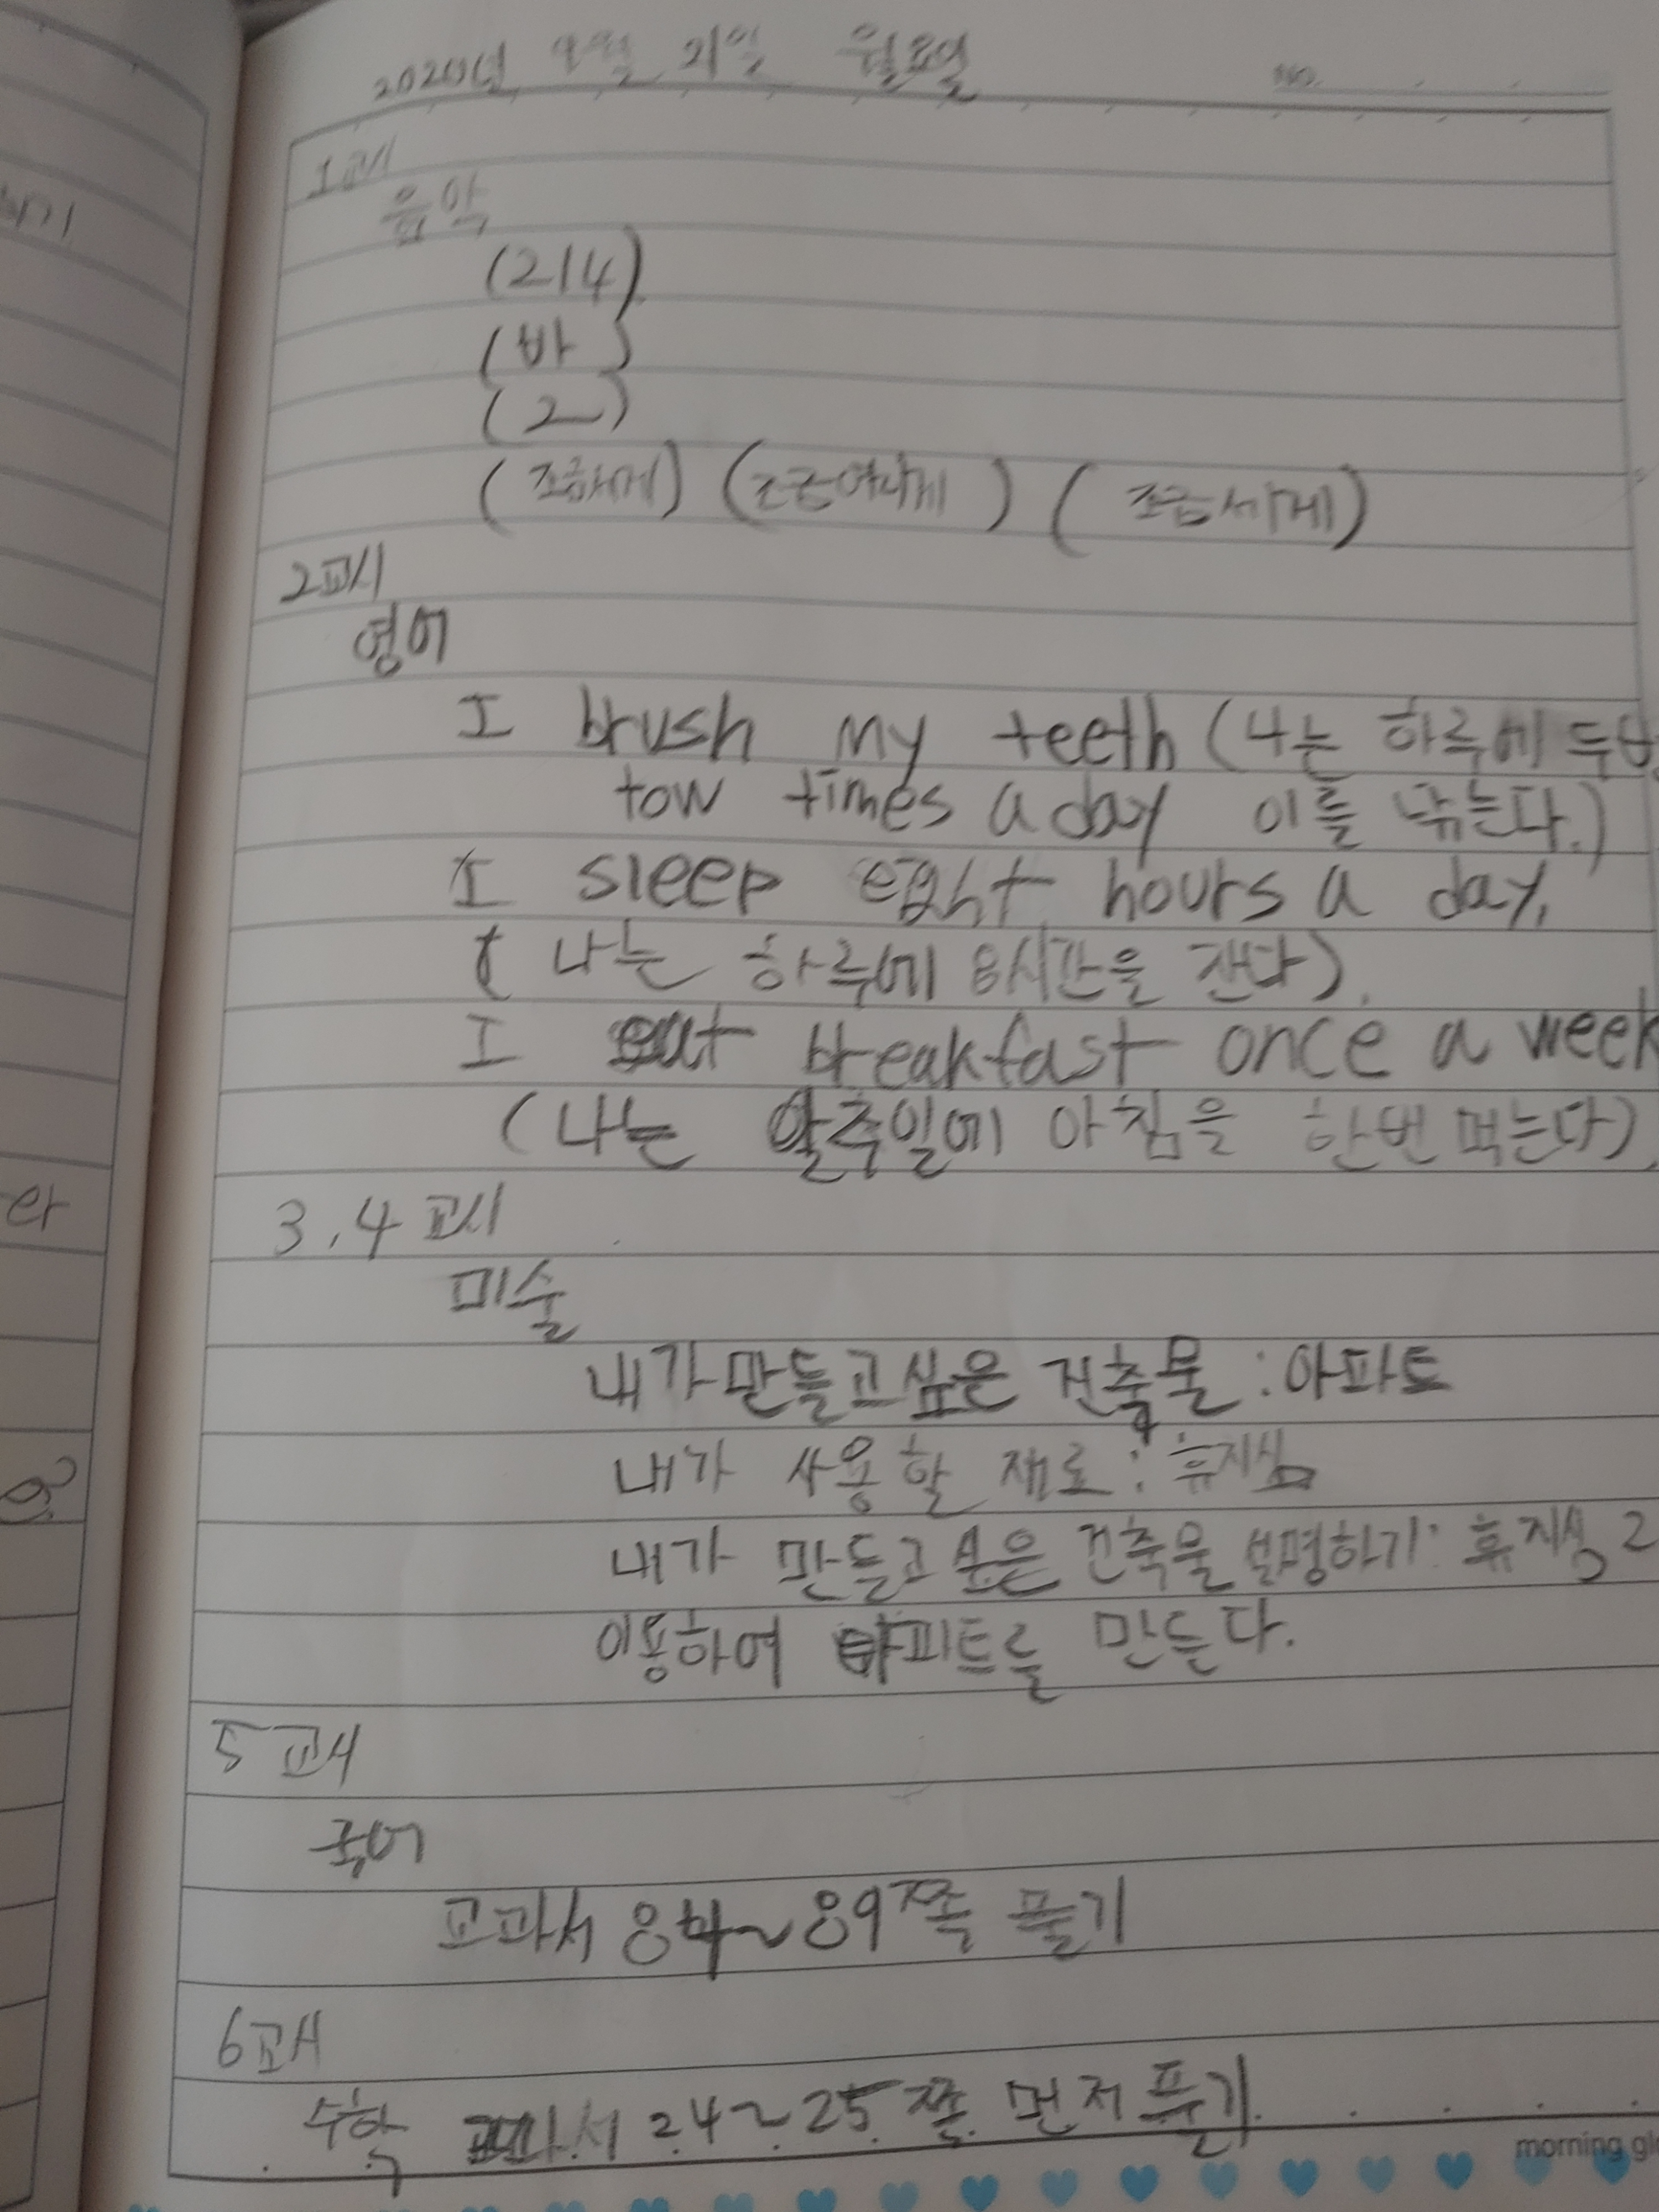 2020년 9월 21일 월요일
NO.
1교시
음악
(2/4)
(바)
(2)
(조금세게) (조금여리게) (조금세게)
2교시
영어
I brush my teeth (나는 하루에 두번
tow times a day 이를 닦는다.)
I sleep eght hours a day.
(나는 하루에 8시간을 잔다).
I eat breakfast once a week
(나는 일주일에 아침을 한번 먹는다).
3.4교시
미술
내가만들고싶은 건축물:아파트
내가 사용할 재료: 휴지심
내가 만들고싶은 건축물 설명하기: 휴지심 2
이용하여 아파트를 만든다.
5교시
국어
교과서 84~89쪽 풀기
6교시
수학 교과서 24~25쪽 먼저 풀기
morning gl